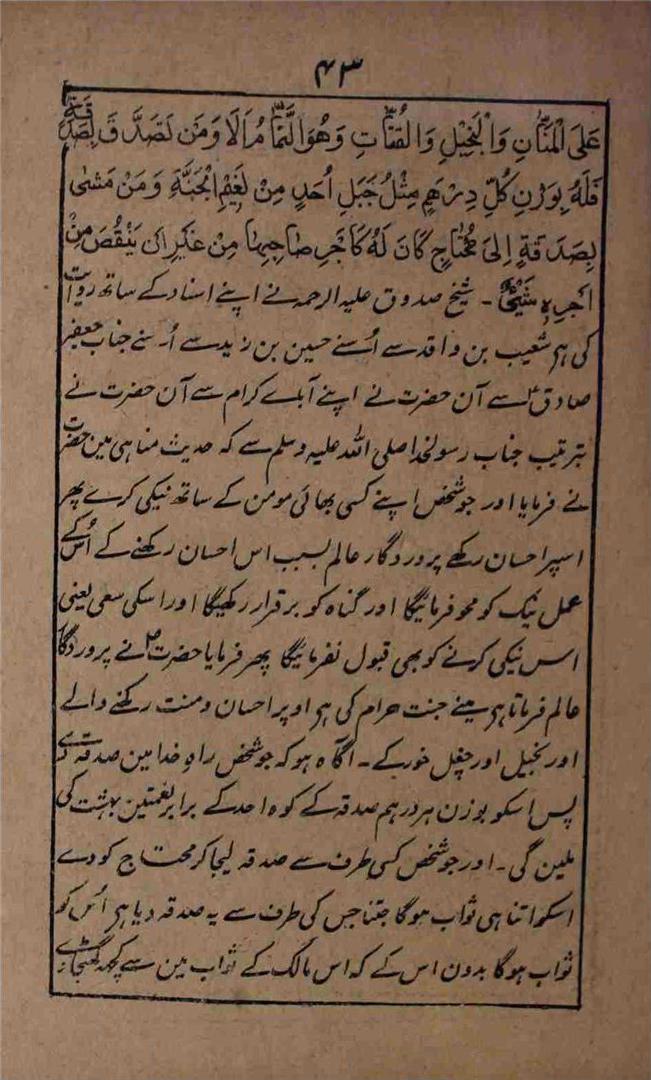 ۴۳
عَلَى الْمَنَّانِ وَالْبَخِيْلِ وَالْقَتَّاتِ وَهُوَ النَّمَّامُ اَلَا وَمَن تَصَدَّقَ بِصَدَقَةٍ
فَلَهُ بِوَزْنِ كُلِّ دِرْهَمٍ مِثْلُ جَبَلِ اُحُدٍ مِنْ نَعِيْمِ الْجَنَّةِ وَمَنْ مَشٰى
بِصَدَقَةٍ اِلىٰ مُحْتَاجٍ كَانَ لَهُ كَاَجْرِ صَاحِبِهَا مِنْ غَيْرِ اَنْ يَنْقُصَ مِنْ
اَجْرِهٖ شَيْئٌ ۔ شیخ صدوق علیہ الرحمہ نے اپنے اسناد کے ساتھ روایت
کی ہی شعیب بن واقد سے اُسنے حسین بن زید سے اُسنے جناب جعفر
صادقؑ سے آن حضرت نے اپنے آبائے کرام سے آن حضرت نے
بترتیب جناب رسولخدا صلی اللہ علیہ وسلم سے کہ حدیث مناہی مین حضرت
نے فرمایا اور جو شخص اپنے کسی بھائی مومن کے ساتھ نیکی کرے پھر
اسپر احسان رکھے پروردگار عالم بسبب اس احسان رکھنے کے اُس کے
عمل نیک کو محو فرمائیگا اور گناہ کو برقرار رکھیگا اور اسکی سعی یعنی
اس نیکی کرنے کو بھی قبول نفرمائیگا پھر فرمایا حضرتؐ نے پروردگار
عالم فرماتا ہی مینے جنت حرام کی ہی اوپر احسان و منت رکھنے والے
اور بخیل اور چغل خور کے ۔ آگاہ ہو کہ جو شخص راہِ خدا مین صدقہ دے
پس اسکو بوزن ہر درہم صدقہ کے کوہ احد کے برابر نعمتین بہشت کی
ملین گی ۔ اور جو شخص کسی طرف سے صدقہ لیجا کر محتاج کو دے
اسکو اتنا ہی ثواب ہوگا جتنا جس کی طرف سے یہ صدقہ دیا ہی اُس کو
ثواب ہوگا بدون اس کے کہ اس مالک کے ثواب مین سے کچھ